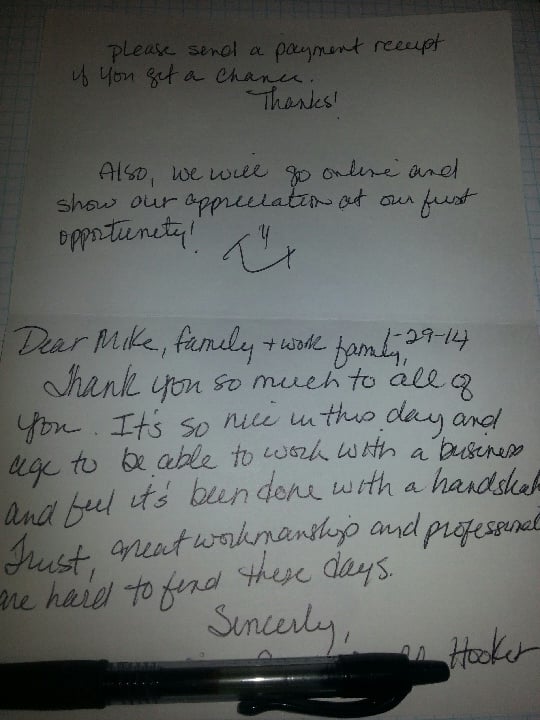 please send a payment receipt
if you get a chance.
Thanks!
Also, we will go online and
show our appreciation at our first
opportunity!
Dear Mike, family + work family, 1-29-14
Thank you so much to all of
you. It's so nice in this day and
age to be able to work with a business
and feel it's been done with a handshak
Trust, great workmanship and professional
are hard to find these days.
Sincerly,
Hooker